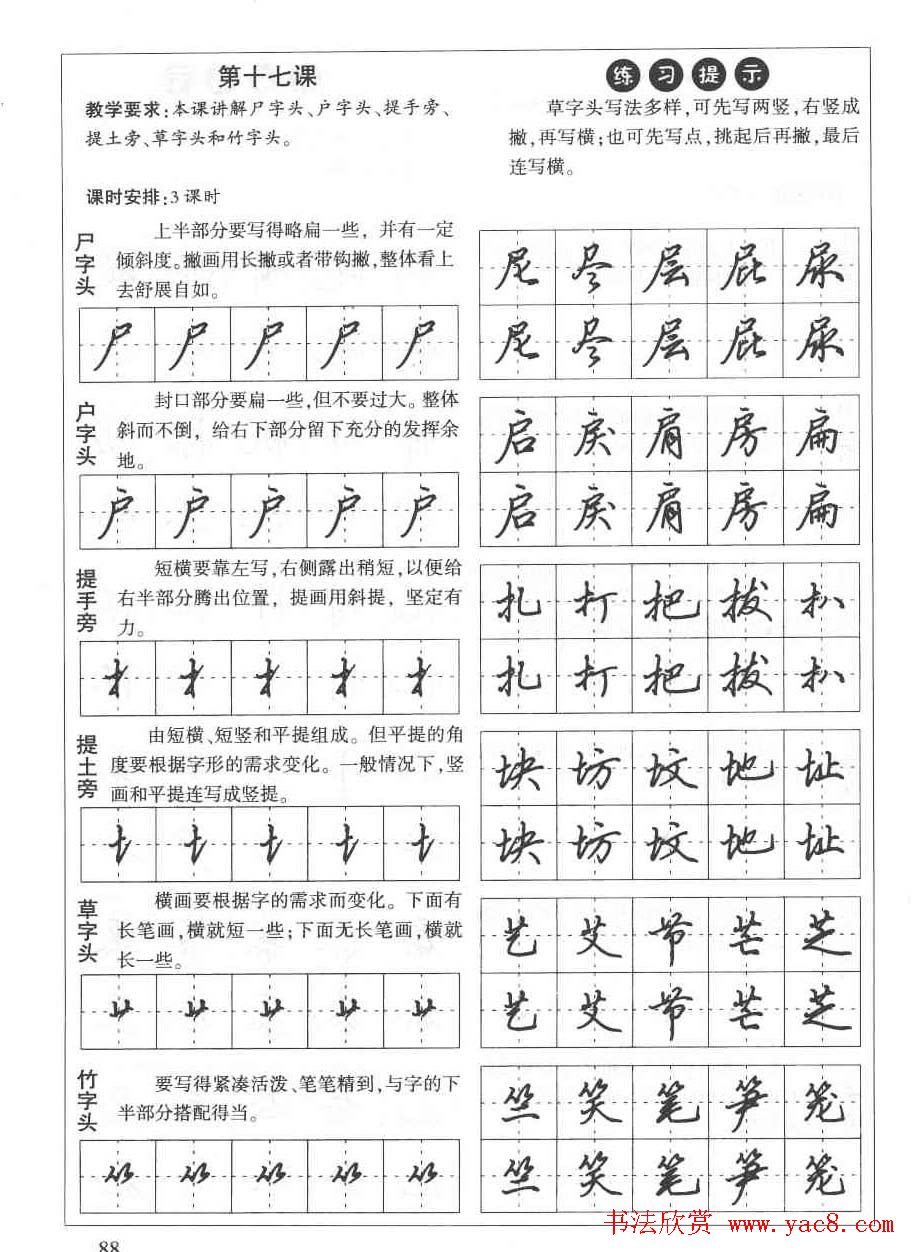 第十七课
教学要求:本课讲解尸字头、户字头、提手旁、
提土旁、草字头和竹字头。
课时安排:3课时
练习提示
草字头写法多样,可先写两竖,右竖成
撇,再写横;也可先写点,挑起后再撇,最后
连写横。
尸字头
上半部分要写得略扁一些,并有一定
倾斜度。撇画用长撇或者带钩撇,整体看上
去舒展自如。
尸尸尸尸尸
尾尽层屁尿
尾尽层屁尿
户字头
封口部分要扁一些,但不要过大。整体
斜而不倒,给右下部分留下充分的发挥余
地。
户户户户户
启戾肩房扁
启戾肩房扁
提手旁
短横要靠左写,右侧露出稍短,以便给
右半部分腾出位置,提画用斜提,坚定有
力。
扌扌扌扌扌
扎打把拔扒
扎打把拔扒
提土旁
由短横、短竖和平提组成。但平提的角
度要根据字形的需求变化。一般情况下,竖
画和平提连写成竖提。
土土土土土
块坊坟地址
块坊坟地址
草字头
横画要根据字的需求而变化。下面有
长笔画,横就短一些;下面无长笔画,横就
长一些。
艹艹艹艹艹
艺艾节芒芝
艺艾节芒芝
竹字头
要写得紧凑活泼、笔笔精到,与字的下
半部分搭配得当。
⺮⺮⺮⺮⺮
竺笑笔笋笼
竺笑笔笋笼
88
书法欣赏 www.yac8.com